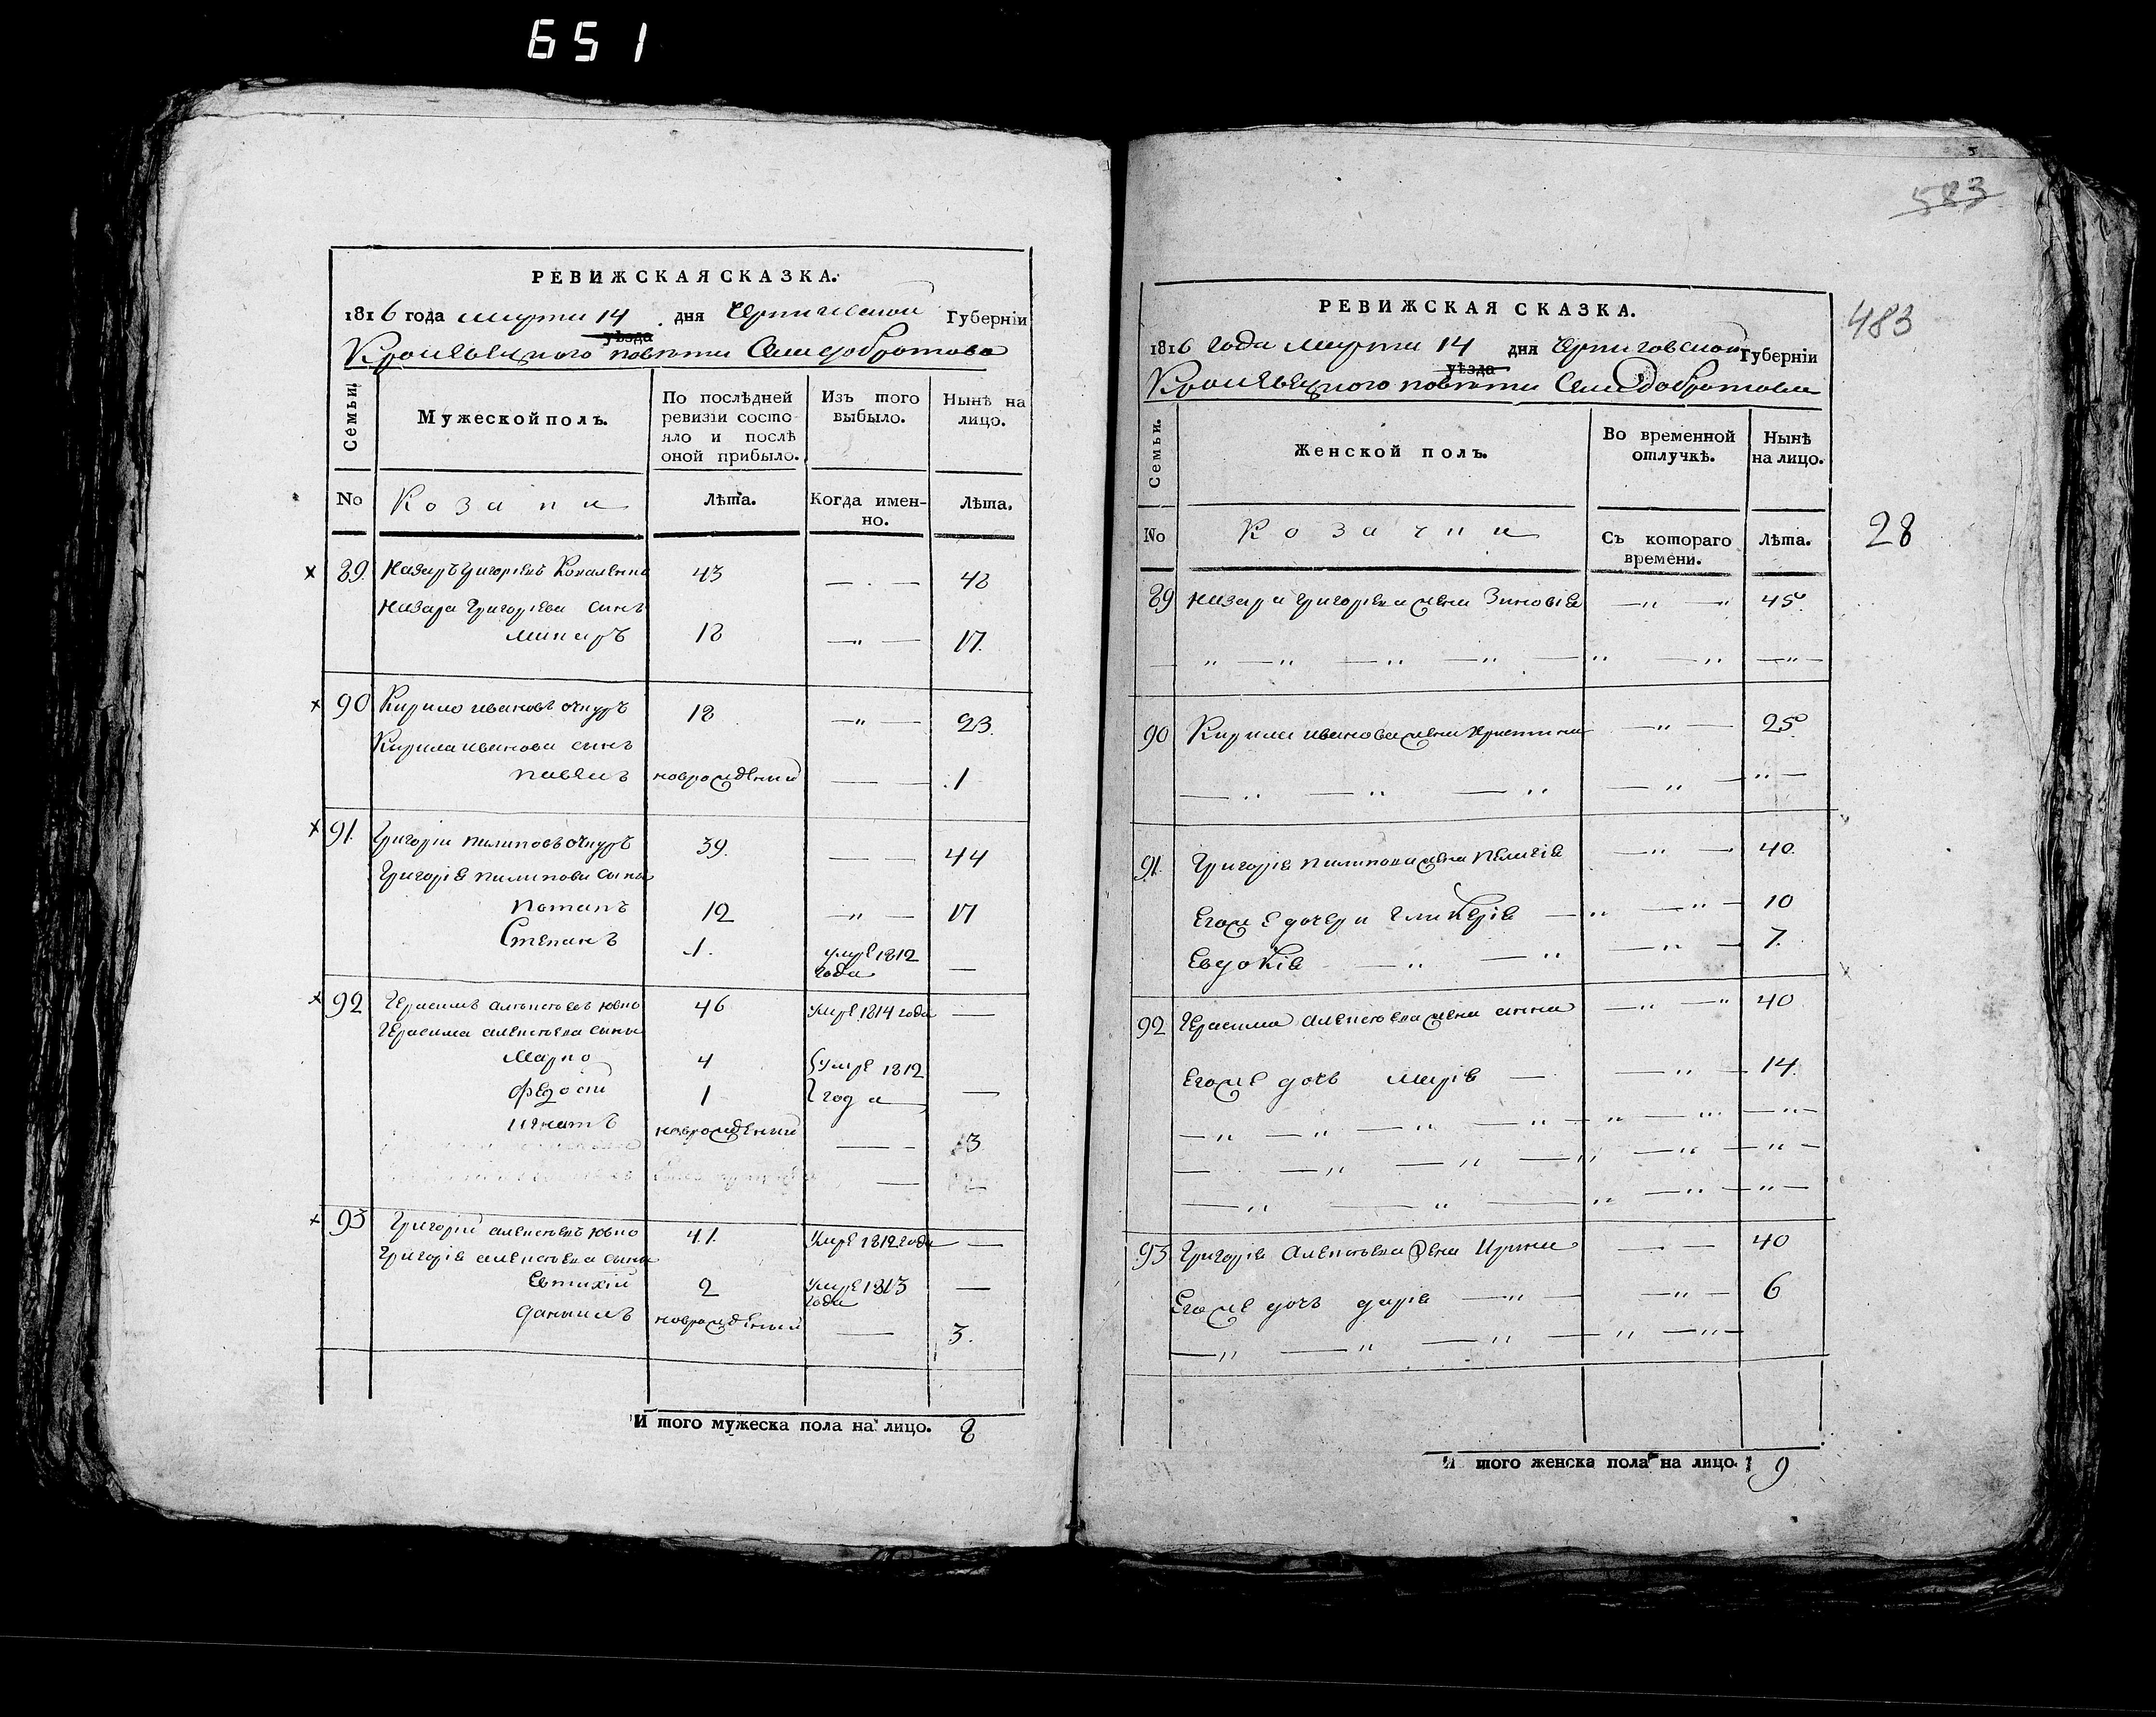 651
РЕВИЖСКАЯ СКАЗКА.
1816 года марта 14 дня Черниговской Губернiи
уѣзда
Кролевецкого повѣта Села Добротова
Семьи.
Мужеской полъ.
По послѣдней ревизiи состояло и послѣ оной прибыло.
Изъ того выбыло.
Нынѣ на лицо.
No
Козаки
Лѣта.
Когда именно.
Лѣта.
89. Назаръ Григорiевъ Коваленко 43 — . — 48
Назара Григорiева сынъ
Макаръ 12 — „ — 17.
90 Кирило Ивановъ Очкуръ 18 — „ — 23.
Кирила Иванова сынъ
Павелъ новрожденный — — 1
91. Григорiи Пилиповъ Очкуръ 39. — — 44
Григорiя Пилипова сыны
Потапъ 12 — „ — 17
Степанъ 1. умре 1812 года —
92 Герасимъ Алексѣевъ 46 умре 1814 года —
Герасима Алексѣева сыны
Марко 4 умре 1812
Федосiй 1 года —
Игнатъ новрожденный — — 3.
93 Григорiй Алексѣевъ 41. умре 1812 года —
Григорiя Алексѣева сыны
Евтихiй 2 умре 1813 года —
Данiилъ новрожденный — 3.
И того мужеска пола на лицо. 8
583
483
28
РЕВИЖСКАЯ СКАЗКА.
1816 года марта 14 дня Черниговской Губернiи
уѣзда
Кролевецкого повѣта Села Добротова
Семьи.
Женской полъ.
Во временной отлучкѣ.
Нынѣ на лицо.
No
Козачки
Съ котораго времени.
Лѣта.
89 Назара Григорiева жена Зиновiя — „ — „ 45.
90 Кирила Иванова жена Христина — „ — 25
91. Григорiя Пилипова жена Пелагiя — „ — 40.
Егож е дочери Гликерiя — „ — „ — 10
Евдокiя — „ — „ — „ — 7.
92 Герасима Алексѣева жена Анна — „ — „ 40
Егоже дочь Марiя — — „ — 14.
93 Григорiя Алексѣева жена Ирина — — 40
Егоже дочь Дарiя — „ — — „ — 6
И того женска пола на лицо. 9